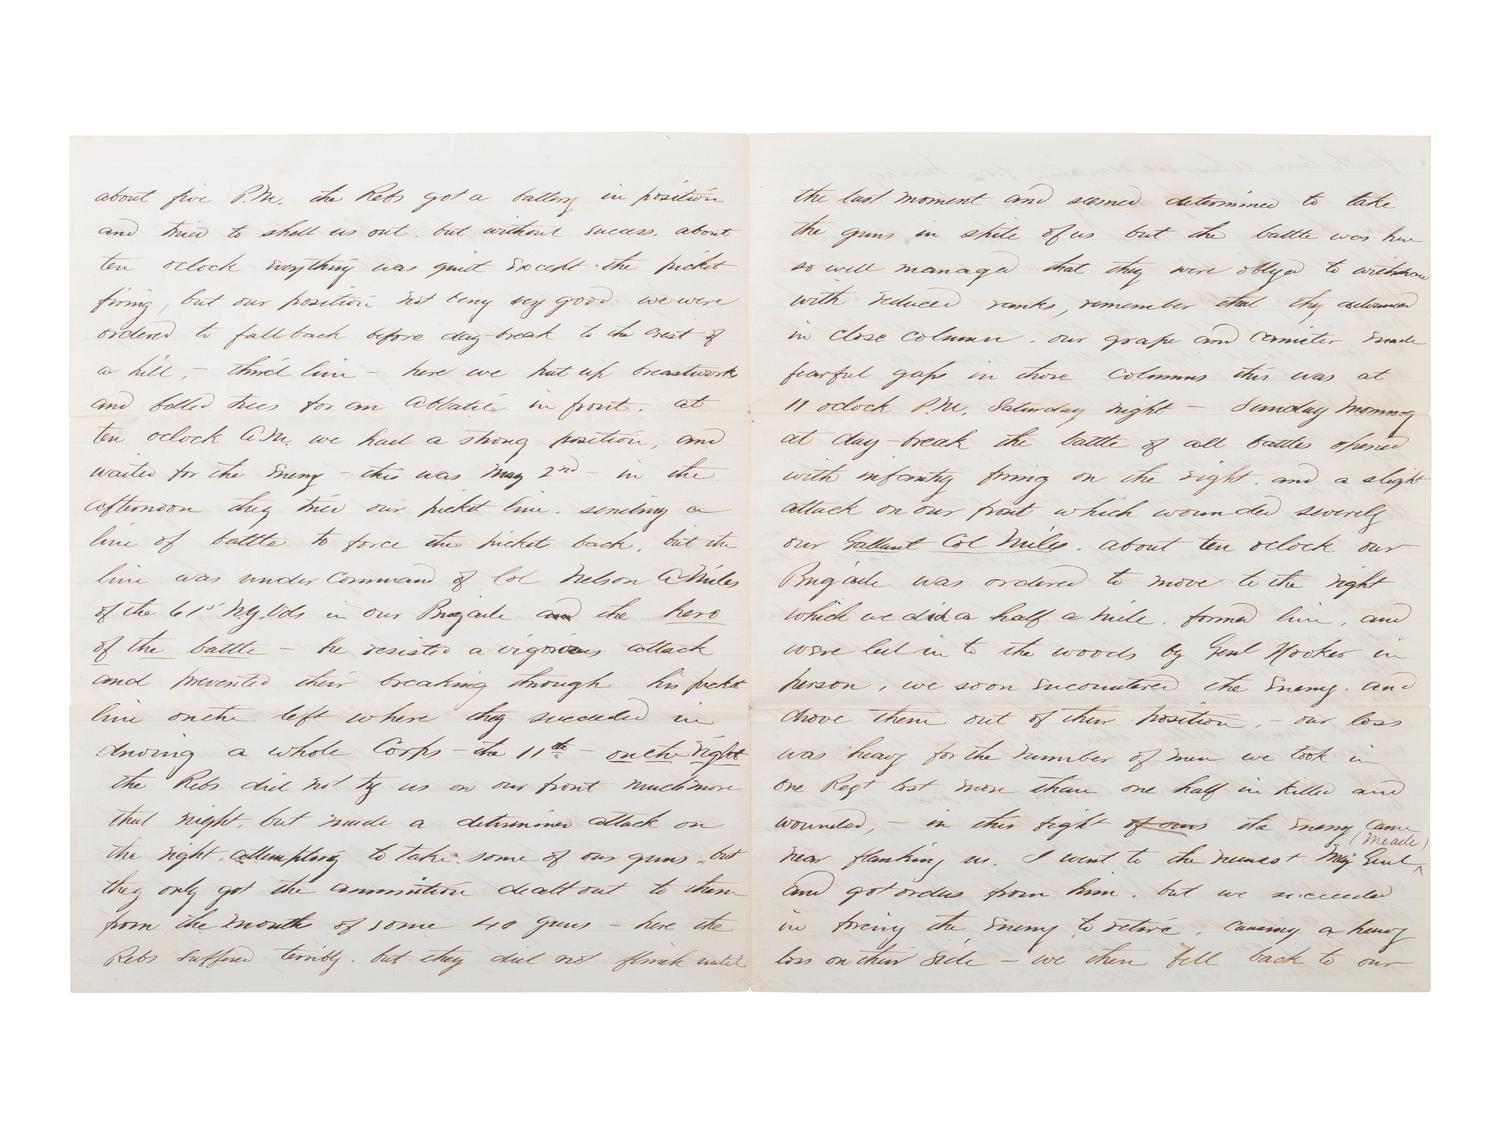 about five P.M. the Rebs got a battery in position
and tried to shell us out. but without success. about
ten oclock Everything was quiet Except the picket
firing, but our position not very good we were
ordered to fall back before day-break to the crest of
a hill, - third line - here we put up breastwork
and felled trees for an Abbatie in front. at
ten oclock A.M. we had a strong position, and
waited for the Enemy - this was May 2nd - in the
afternoon they tried our picket line. sending a
line of battle to force the picket back. but the
line was under Command of Col Nelson A Miles
of the 61st N.Y. Vols in our Brigade and the hero
of the battle - he resisted a vigorous attack
and prevented their breaking through his picket
line on the left where they succeeded in
driving a whole Corps - the 11th - on the right
the Rebs did not try us on our front much more
that night. but made a determined attack on
the right. attempting to take some of our guns. but
they only got the ammunition dealt out to them
from the mouth of some 40 guns - here the
Rebs suffered terribly. but they did not flinch until
the last moment and seemed determined to take
the guns in spite of us but the battle was here
so well managed that they were obliged to withdraw
with reduced ranks, remember that they advanced
in close column. our grape and canister made
fearful gaps in those columns this was at
11 oclock P.M. Saturday night - Sunday morning
at day-break the battle of all battles opened
with infantry firing on the right. and a slight
attack on our front which wounded severely
our Gallant Col Miles. about ten oclock our
Brigade was ordered to move to the right
which we did a half a mile. formed line, and
were led in to the woods by Genl Hooker in
person, we soon encountered the Enemy. and
drove them out of their position, - our loss
was heavy for the number of men we took in
one Regt lost more than one half in killed and
wounded, - in this fight of ours the Enemy came
near flanking us. I went to the nearest Maj Genl (Meade)
and got orders from him. but we succeeded
in forcing the Enemy to retire, causing a heavy
loss on their side - we then fell back to our